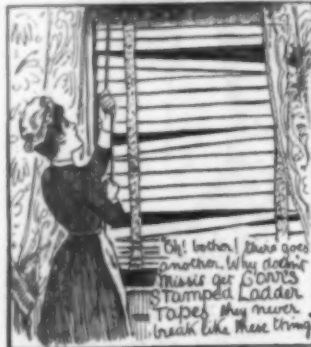 "Oh! bother! there goes
another. Why doesn't
Missis get CARR'S
STAMPED LADDER
TAPES they never
break like these things